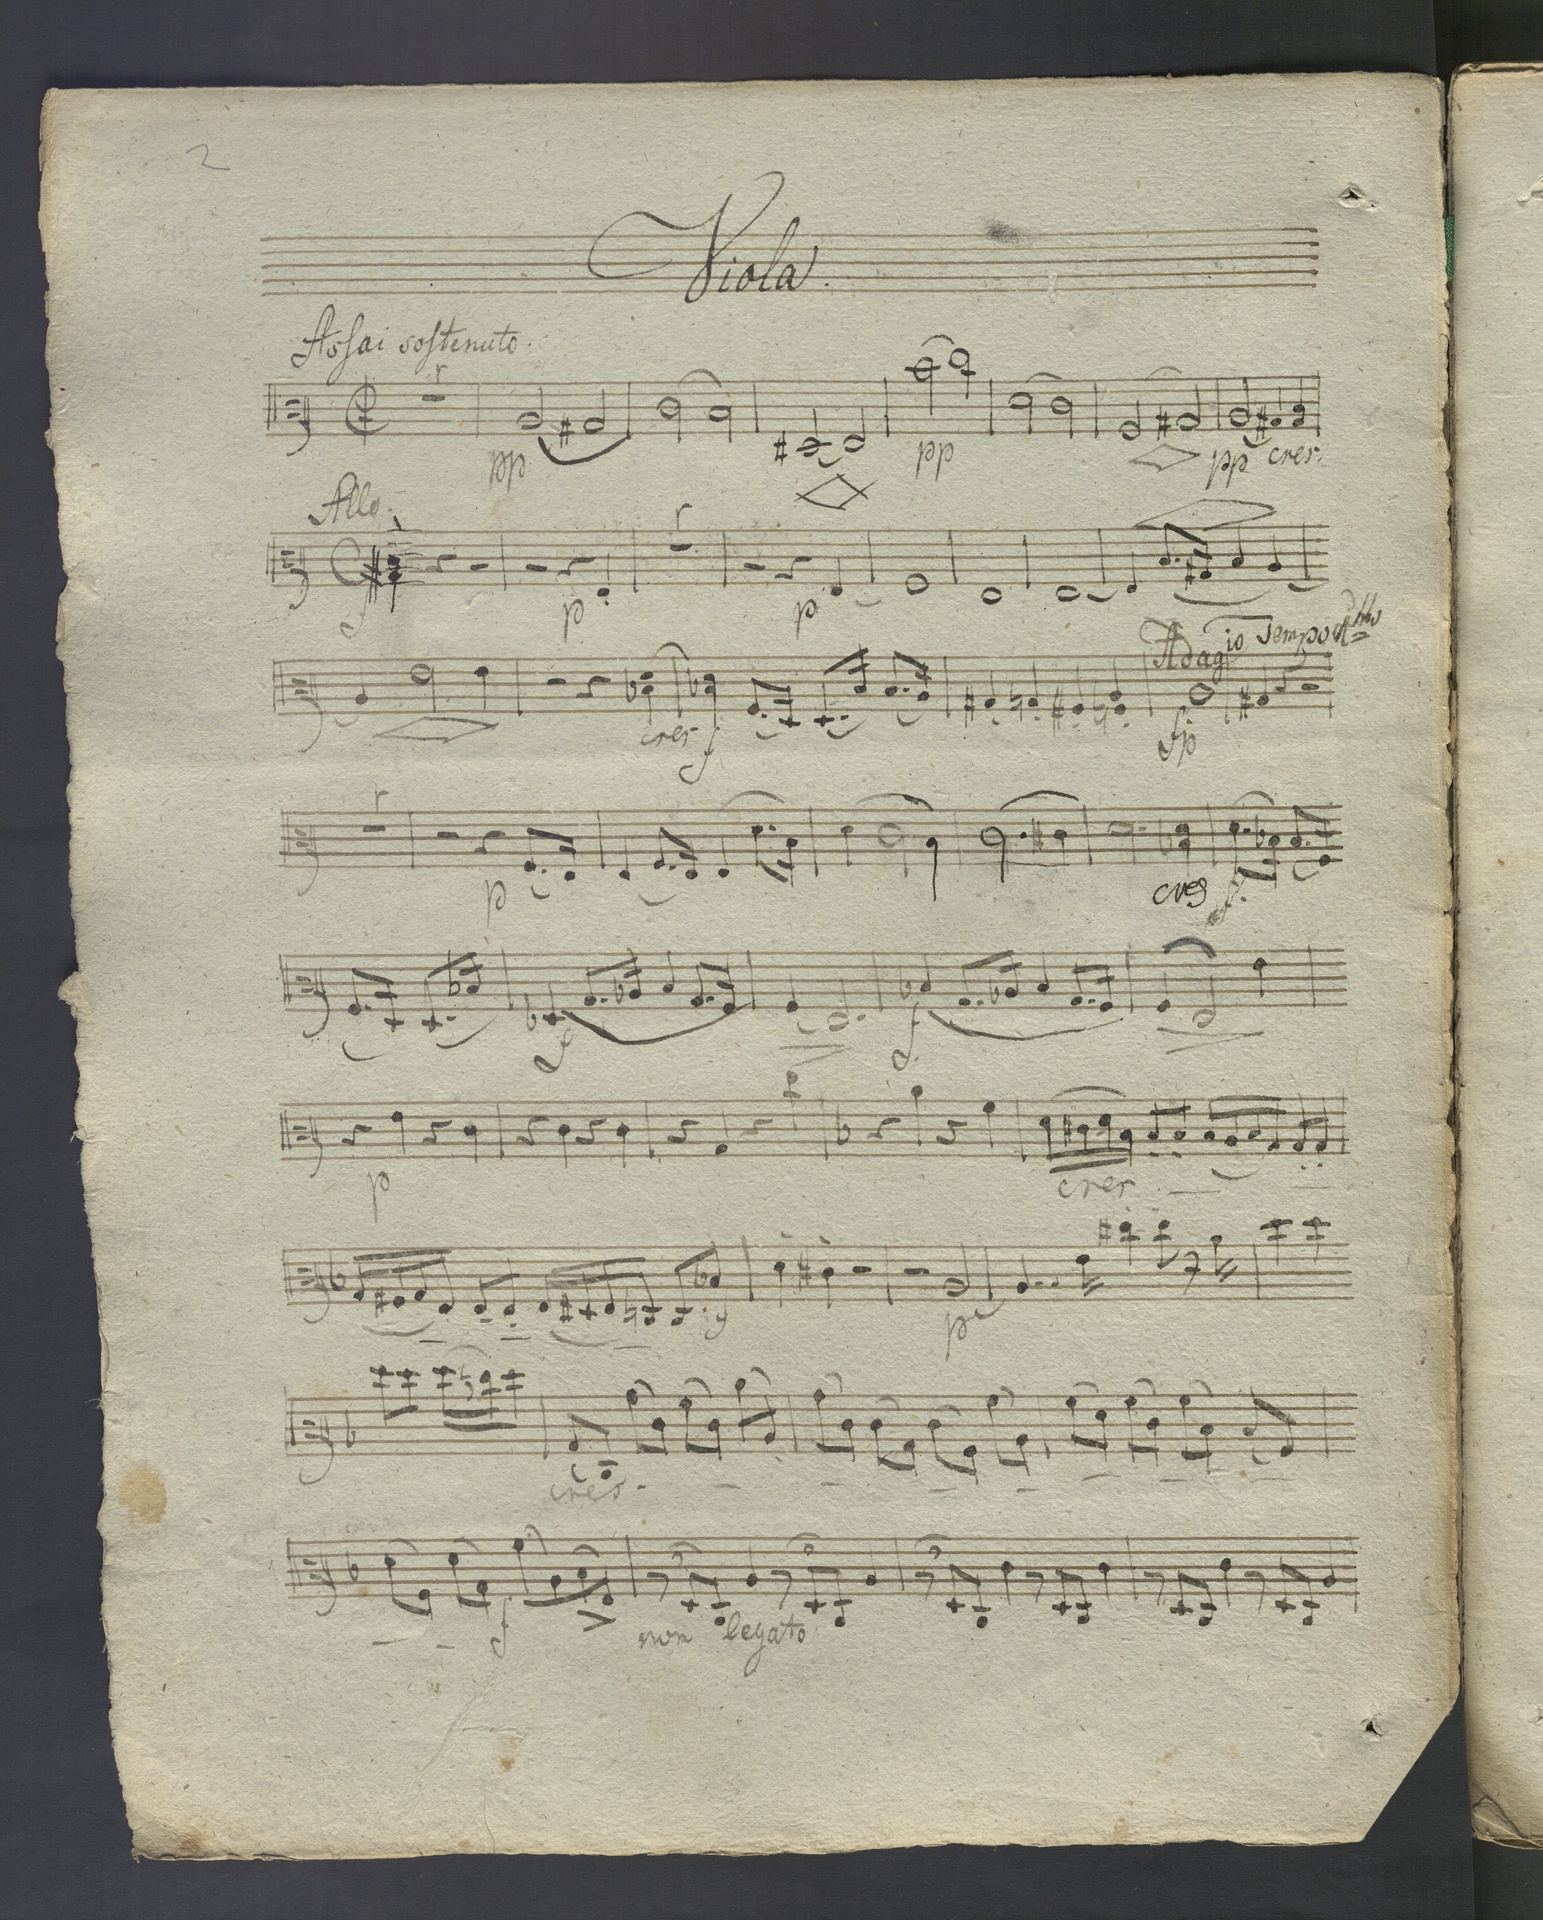 2
Viola.
Assai sostenuto.
pp pp pp cres.
Allo.
f p p
Adagio Tempo
cres f fp
p cres f
f f
p cres
p f
cres.
f non legato